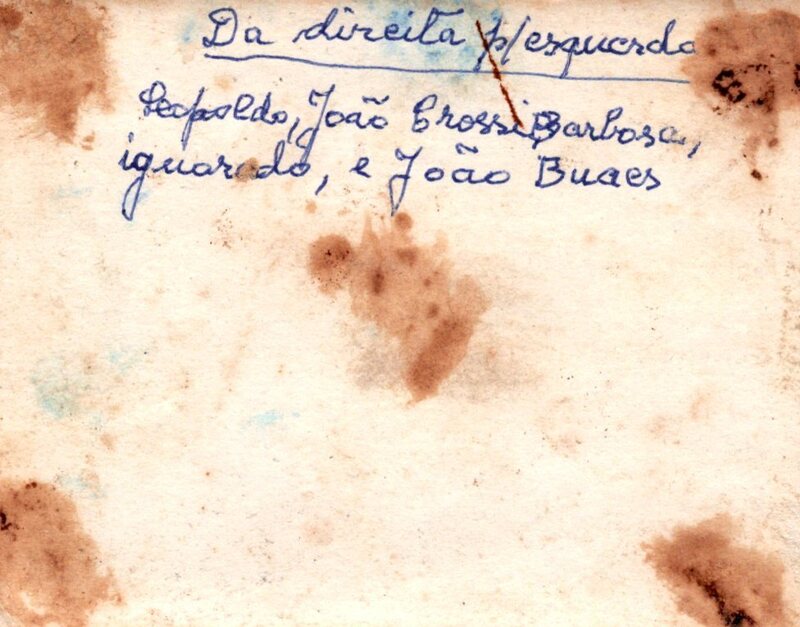 Da direita p/esquerda
Leopoldo, João Grossi, Barbosa,
iguorado, e João Buaes